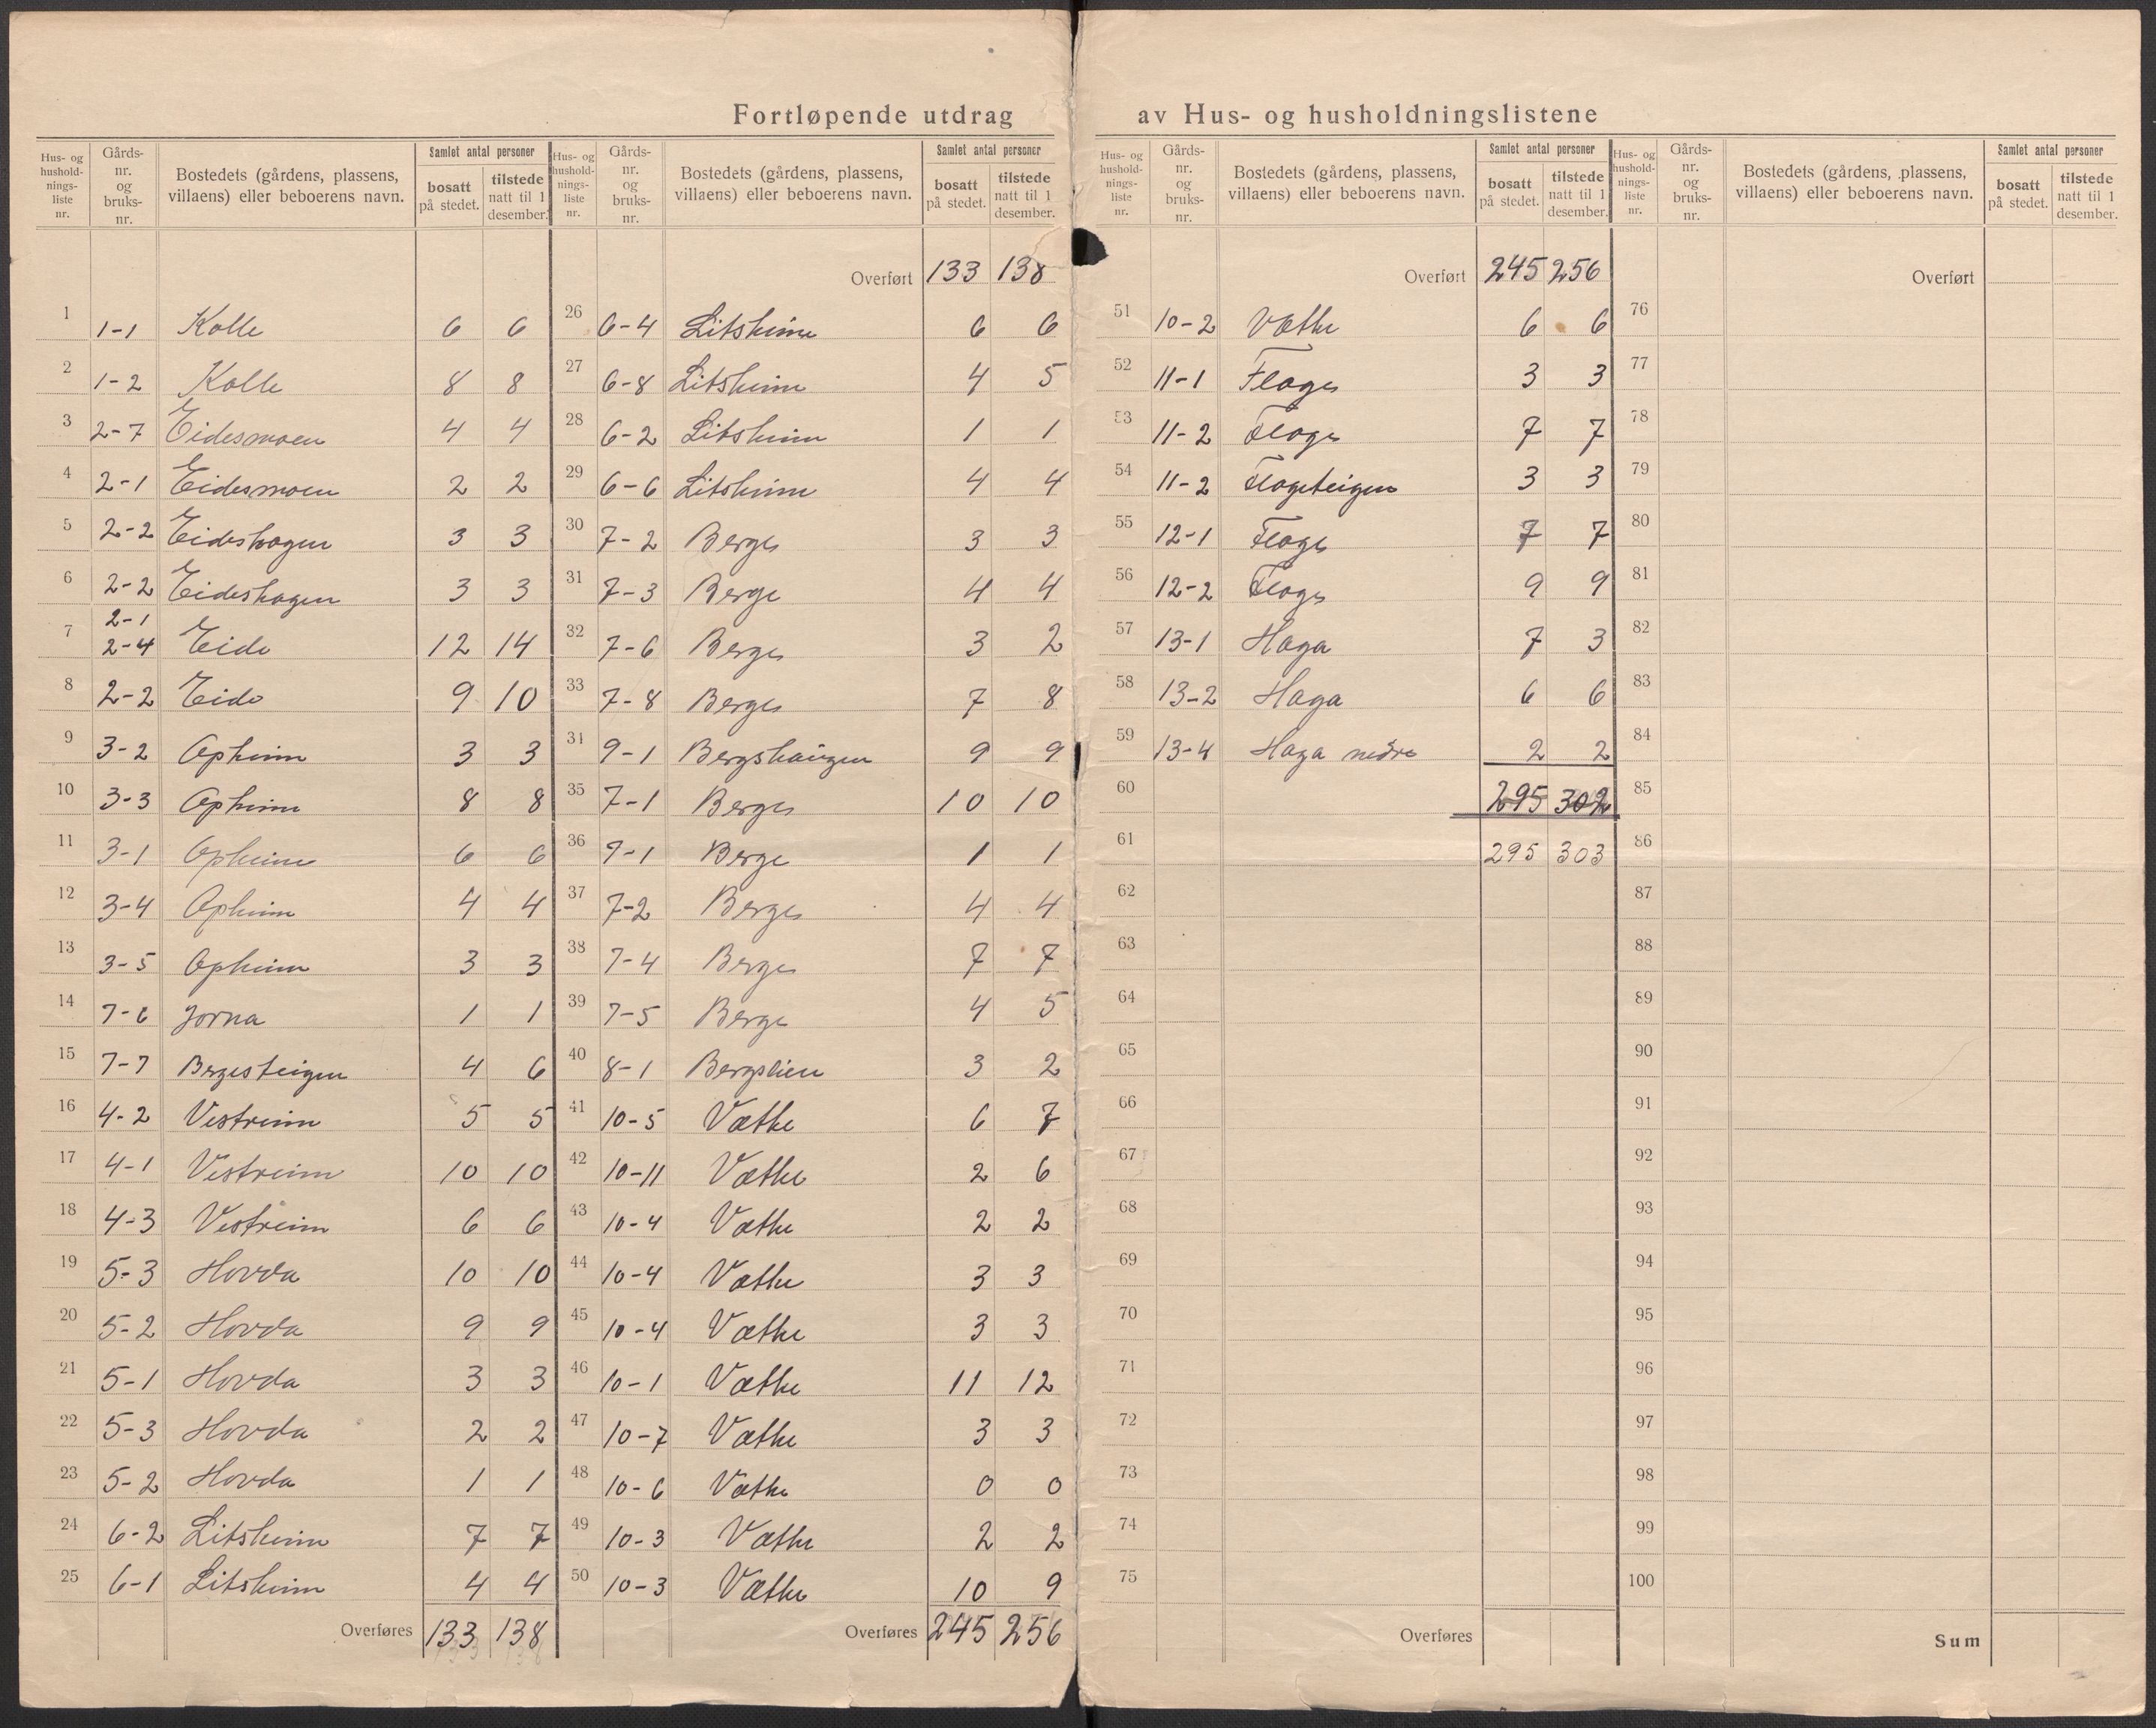 Fortløpende utdrag av Hus- og husholdningslistene
Hus- og hushold-nings-liste nr. Gårds-nr. og bruks-nr. Bostedets (gårdens, plassens, villaens) eller beboerens navn. Samlet antal personer bosatt på stedet. tilstede natt til 1 desember.
1 1-1 Kolle 6 6
2 1-2 Kolle 8 8
3 2-7 Eidesmoen 4 4
4 2-1 Eidesmoen 2 2
5 2-2 Eideshagen 3 3
6 2-2 Eideshagen 3 3
7 2-1 2-4 Eide 12 14
8 2-2 Eide 9 10
9 3-2 Opheim 3 3
10 3-3 Opheim 8 8
11 3-1 Opheim 6 6
12 3-4 Opheim 4 4
13 3-5 Opheim 3 3
14 7-6 Jorna 1 1
15 7-7 Bergesteigen 4 6
16 4-2 Vestreim 5 5
17 4-1 Vestreim 10 10
18 4-3 Vestreim 6 6
19 5-3 Hovda 10 10
20 5-2 Hovda 9 9
21 5-1 Hovda 3 3
22 5-3 Hovda 2 2
23 5-2 Hovda 1 1
24 6-2 Litsheim 7 7
25 6-1 Litsheim 4 4
Overføres 133 138
133 138
Hus- og hushold-nings-liste nr. Gårds-nr. og bruks-nr. Bostedets (gårdens, plassens, villaens) eller beboerens navn. Samlet antal personer bosatt på stedet. tilstede natt til 1 desember.
Overført 133 138
26 6-4 Litsheim 6 6
27 6-8 Litsheim 4 5
28 6-2 Litsheim 1 1
29 6-6 Litsheim 4 4
30 7-2 Berge 3 3
31 7-3 Berge 4 4
32 7-6 Berge 3 2
33 7-8 Berge 7 8
34 9-1 Bergshaugen 9 9
35 7-1 Berge 10 10
36 7-1 Berge 1 1
37 7-2 Berge 4 4
38 7-4 Berge 7 7
39 7-5 Berge 4 5
40 8-1 Bergslien 3 2
41 10-5 Væthe 6 7
42 10-11 Væthe 2 6
43 10-4 Væthe 2 2
44 10-4 Væthe 3 3
45 10-4 Væthe 3 3
46 10-1 Væthe 11 12
47 10-7 Væthe 3 3
48 10-6 Væthe 0 0
49 10-3 Væthe 2 2
50 10-3 Væthe 10 9
Overføres 245 256
Hus- og hushold-nings-liste nr. Gårds-nr. og bruks-nr. Bostedets (gårdens, plassens, villaens) eller beboerens navn. Samlet antal personer bosatt på stedet. tilstede natt til 1 desember.
Overført 245 256
51 10-2 Væthe 6 6
52 11-1 Flage 3 3
53 11-2 Flage 7 7
54 11-2 Flageteigen 3 3
55 12-1 Flage 7 7
56 12-2 Flage 9 9
57 13-1 Haga 7 3
58 13-2 Haga 6 6
59 13-4 Haga nedre 2 2
60 295 302
61 295 303
62
63
64
65
66
67
68
69
70
71
72
73
74
75
Overføres
Hus- og hushold-nings-liste nr. Gårds-nr. og bruks-nr. Bostedets (gårdens, plassens, villaens) eller beboerens navn. Samlet antal personer bosatt på stedet. tilstede natt til 1 desember.
Overført
76
77
78
79
80
81
82
83
84
85
86
87
88
89
90
91
92
93
94
95
96
97
98
99
100
Sum